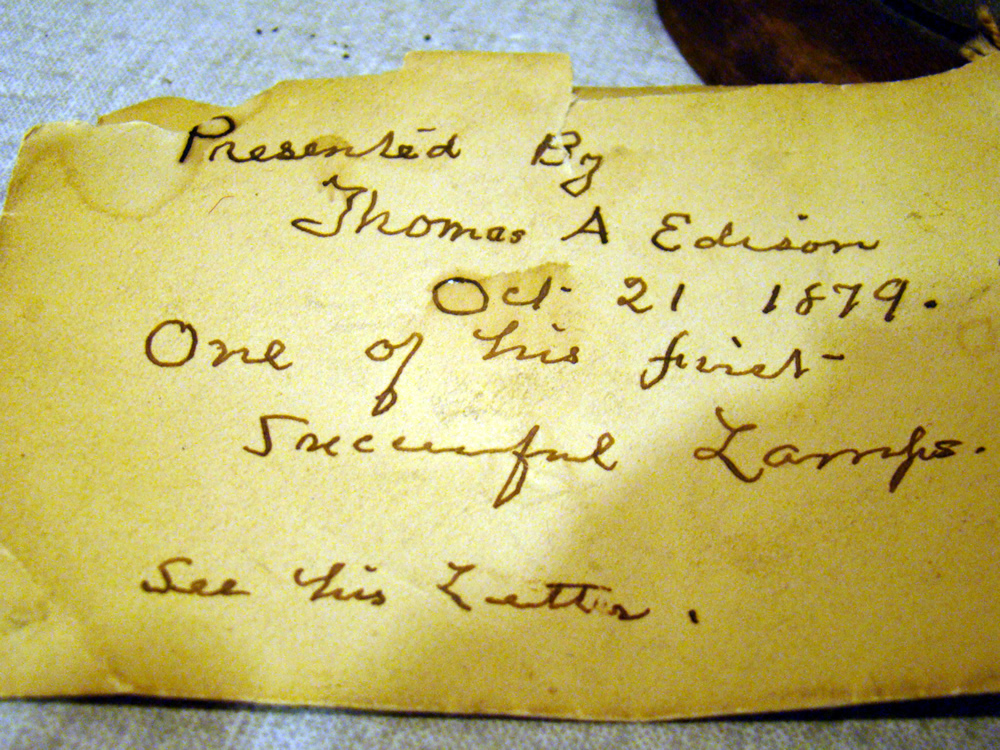 Presented By
Thomas A Edison
Oct 21 1879.
One of his first
Successful Lamps.
See his Letter.